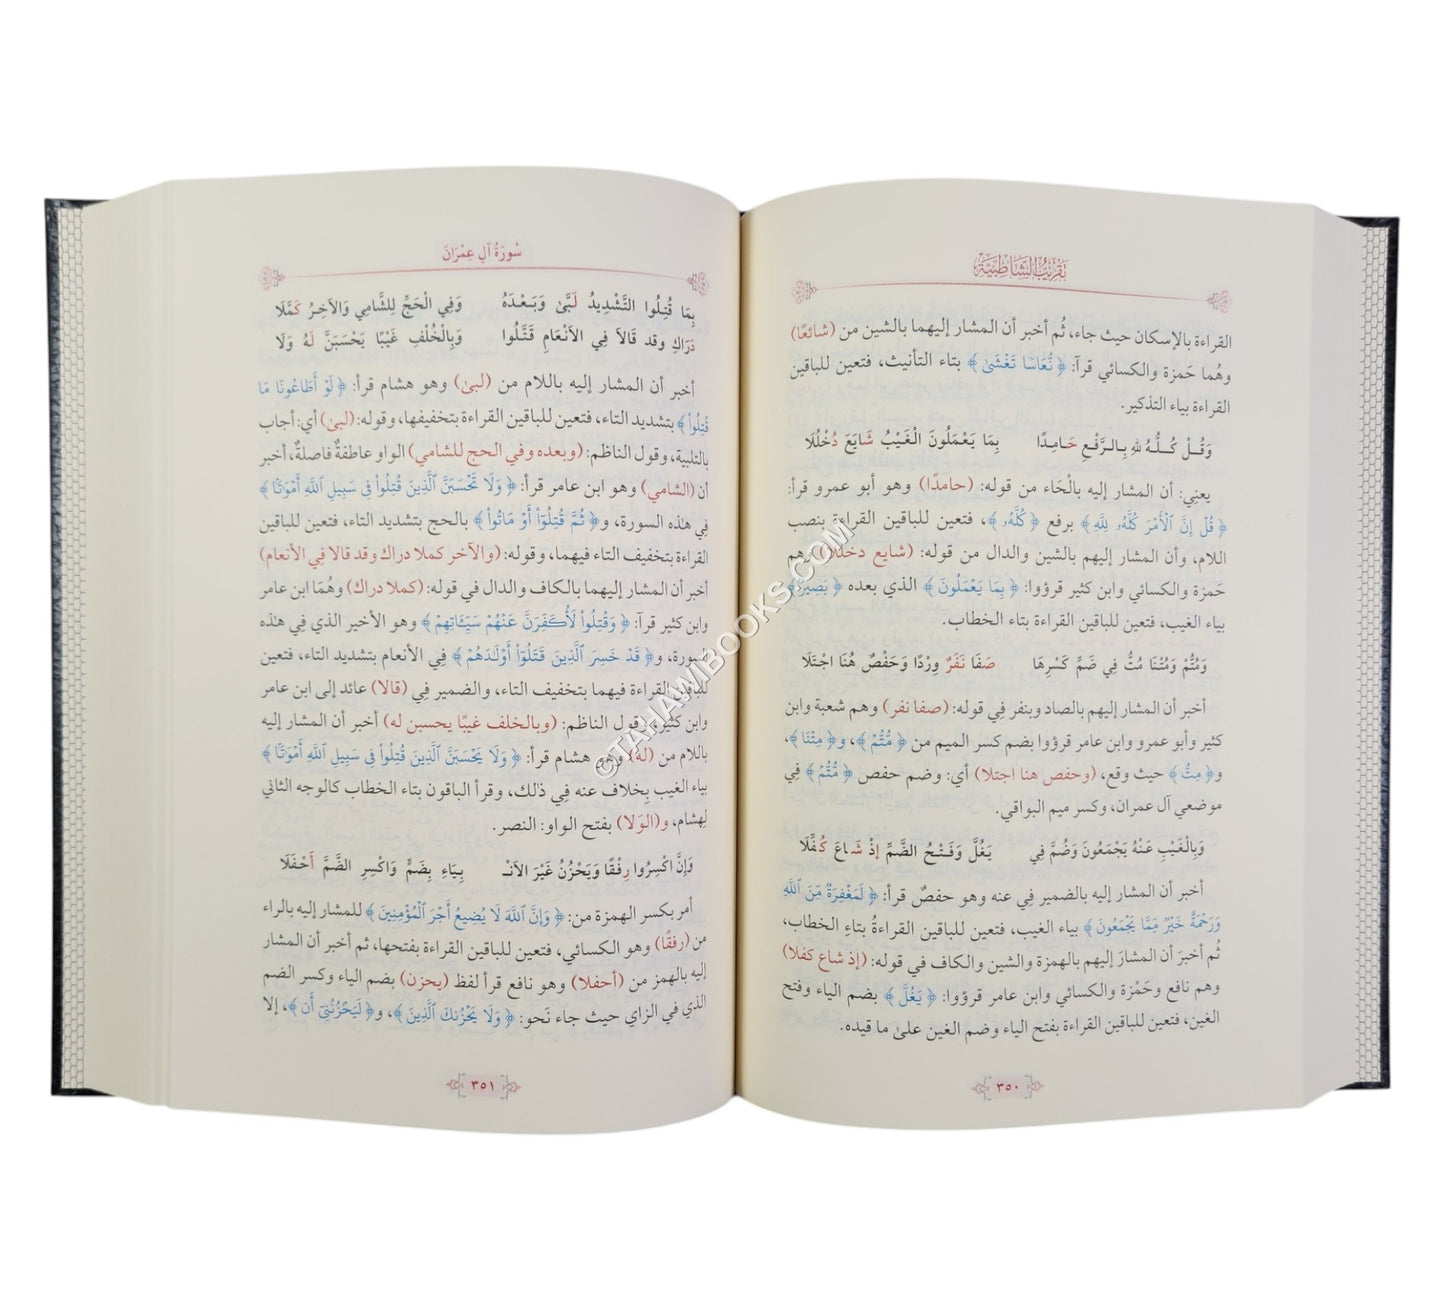 تقريب الشاطبية
القراءة بالإسكان حيث جاء، ثُم أخبر أن المشار إليهما بالشين من (شائعًا)
وهُما حَمزة والكسائي قرآ: ﴿ نُّعَاسًا تَغْشَىٰ ﴾ بتاء التأنيث، فتعين للباقين
القراءة بياء التذكير.
وَقُلْ كُلُّهُ للهِ بِالرَّفْعِ حَامِدًا بِمَا يَعْمَلُونَ الْغَيْبُ شَايَعَ دُخْلُلَا
يعنِي: أن المشار إليه بالْحَاء من قوله: (حامدًا) وهو أبو عمرو قرأ:
﴿ قُلْ إِنَّ ٱلْأَمْرَ كُلُّهُۥ لِلَّهِ ﴾ برفع ﴿ كُلُّهُۥ ﴾، فتعين للباقين القراءة بنصب
اللام، وأن المشار إليهم بالشين والدال من قوله: (شايع دخللا) وهم
حَمزة والكسائي وابن كثير قرؤوا: ﴿ بِمَا يَعْمَلُونَ ﴾ الذي بعده ﴿ بَصِيرٌ ﴾
بياء الغيب، فتعين للباقين القراءة بتاء الخطاب.
وَمُتُّمْ وَمُتْنَا مُتُّ فِي ضَمِّ كَسْرِهَا صَفَا نَفَرٌ وِرْدًا وَحَفْصٌ هُنَا اجْتَلَا
أخبر أن المشار إليهم بالصاد وبنفر فِي قوله: (صفا نفر) وهم شعبة وابن
كثير وأبو عمرو وابن عامر قرؤوا بضم كسر الميم من ﴿ مُّتُّمْ ﴾، و﴿ مِتْنَا ﴾،
و﴿ مِتُّ ﴾ حيث وقع، (وحفص هنا اجتلا) أي: وضم حفص ﴿ مُّتُّمْ ﴾ فِي
موضعي آل عمران، وكسر ميم البواقي.
وَبِالْغَيْبِ عَنْهُ يَجْمَعُونَ وَضُمَّ فِي يَغُلَّ وَفَتْحُ الضَّمِّ إِذْ شَاعَ كُفِّلَا
أخبر أن المشار إليه بالضمير فِي عنه وهو حفصٌ قرأ: ﴿ لَمَغْفِرَةٌ مِّنَ ٱللَّهِ
وَرَحْمَةٌ خَيْرٌ مِّمَّا يَجْمَعُونَ ﴾ بياء الغيب، فتعين للباقين القراءةُ بتاءِ الخطاب،
ثُم أخبرَ أن المشارَ إليهم بالهمزة والشين والكاف في قوله: (إذ شاع كفلا)
وهم نافع وحَمْزة والكسائي وابن عامر قرؤوا: ﴿ يَغُلَّ ﴾ بضم الياء وفتح
الغين، فتعين للباقين القراءة بفتح الياء وضم الغين علىٰ ما قيده.
٣٥٠
سُورَةُ آلِ عِمْرَانَ
بِمَا قُتِلُوا التَّشْدِيدُ لَبَّىٰ وَبَعْدَهُ وَفِي الْحَجِّ لِلشَّامِي وَالآخِرُ كَمَّلَا
دَرَاكِ وقد قَالَا فِي الأَنْعَامِ قَتَّلُوا وَبِالْخُلْفِ غَيْبًا يَحْسَبَنَّ لَهُ وَلَا
أخبر أن المشار إليه باللام من (لبىٰ) وهو هشام قرأ: ﴿ لَوْ أَطَاعُونَا مَا
قُتِلُواْ ﴾ بتشديد التاء، فتعين للباقين القراءة بتخفيفها، وقوله: (لبىٰ) أي: أجاب
بالتلبية، وقول الناظم: (وبعده وفي الحج للشامي) الواو عاطفةٌ فاصلةٌ، أخبر
أن (الشامي) وهو ابن عامر قرأ: ﴿ وَلَا تَحْسَبَنَّ ٱلَّذِينَ قُتِلُواْ فِى سَبِيلِ ٱللَّهِ أَمْوَٰتًا ﴾
فِي هذه السورة، و﴿ ثُمَّ قُتِلُوٓاْ أَوْ مَاتُواْ ﴾ بالحج بتشديد التاء، فتعين للباقين
القراءة بتخفيف التاء فيهما، وقوله: (والآخر كملا دراك وقد قالا فِي الأنعام)
أخبر أن المشار إليهما بالكاف والدال في قوله: (كملا دراك) وهُمَا ابن عامر
وابن كثير قرآ: ﴿ وَقُتِلُواْ لَأُكَفِّرَنَّ عَنْهُمْ سَيِّـَٔاتِهِمْ ﴾ وهو الأخير الذي فِي هذه
السورة، و﴿ قَدْ خَسِرَ ٱلَّذِينَ قَتَلُوٓاْ أَوْلَٰدَهُمْ ﴾ فِي الأنعام بتشديد التاء، فتعين
للباقين القراءة فيهما بتخفيف التاء، والضمير فِي (قالا) عائد إلى ابن عامر
وابن كثير، وقول الناظم: (وبالخلف غيبًا يحسبن له) أخبر أن المشار إليه
باللام من (له) وهو هشام قرأ: ﴿ وَلَا يَحْسَبَنَّ ٱلَّذِينَ قُتِلُواْ فِى سَبِيلِ ٱللَّهِ أَمْوَٰتًا ﴾
بياء الغيب بِخلاف عنه فِي ذلك، وقرأ الباقون بتاء الخطاب كالوجه الثاني
لِهشام، و(الوَلا) بفتح الواو: النصر.
وَإِنَّ اكْسِرُوا رِفْقًا وَيَحْزُنُ غَيْرَ الأَنْـ ـبِيَاءِ بِضَمٍّ وَاكْسِرِ الضَّمَّ أَحْفَلَا
أمر بكسر الهمزة من: ﴿ وَإِنَّ ٱللَّهَ لَا يُضِيعُ أَجْرَ ٱلْمُؤْمِنِينَ ﴾ للمشار إليه بالراء
من (رفقا) وهو الكسائي، فتعين للباقين القراءة بفتحها، ثم أخبر أن المشار
إليه بالهمز من (أحفلا) وهو نافع قرأ لفظ (يحزن) بضم الياء وكسر الضم
الذي في الزاي حيث جاء نَحو: ﴿ وَلَا يَحْزُنكَ ٱلَّذِينَ ﴾، و﴿ لَيَحْزُنُنِىٓ أَن ﴾، إلا
٣٥١
©TAHAWIBOOKS.COM